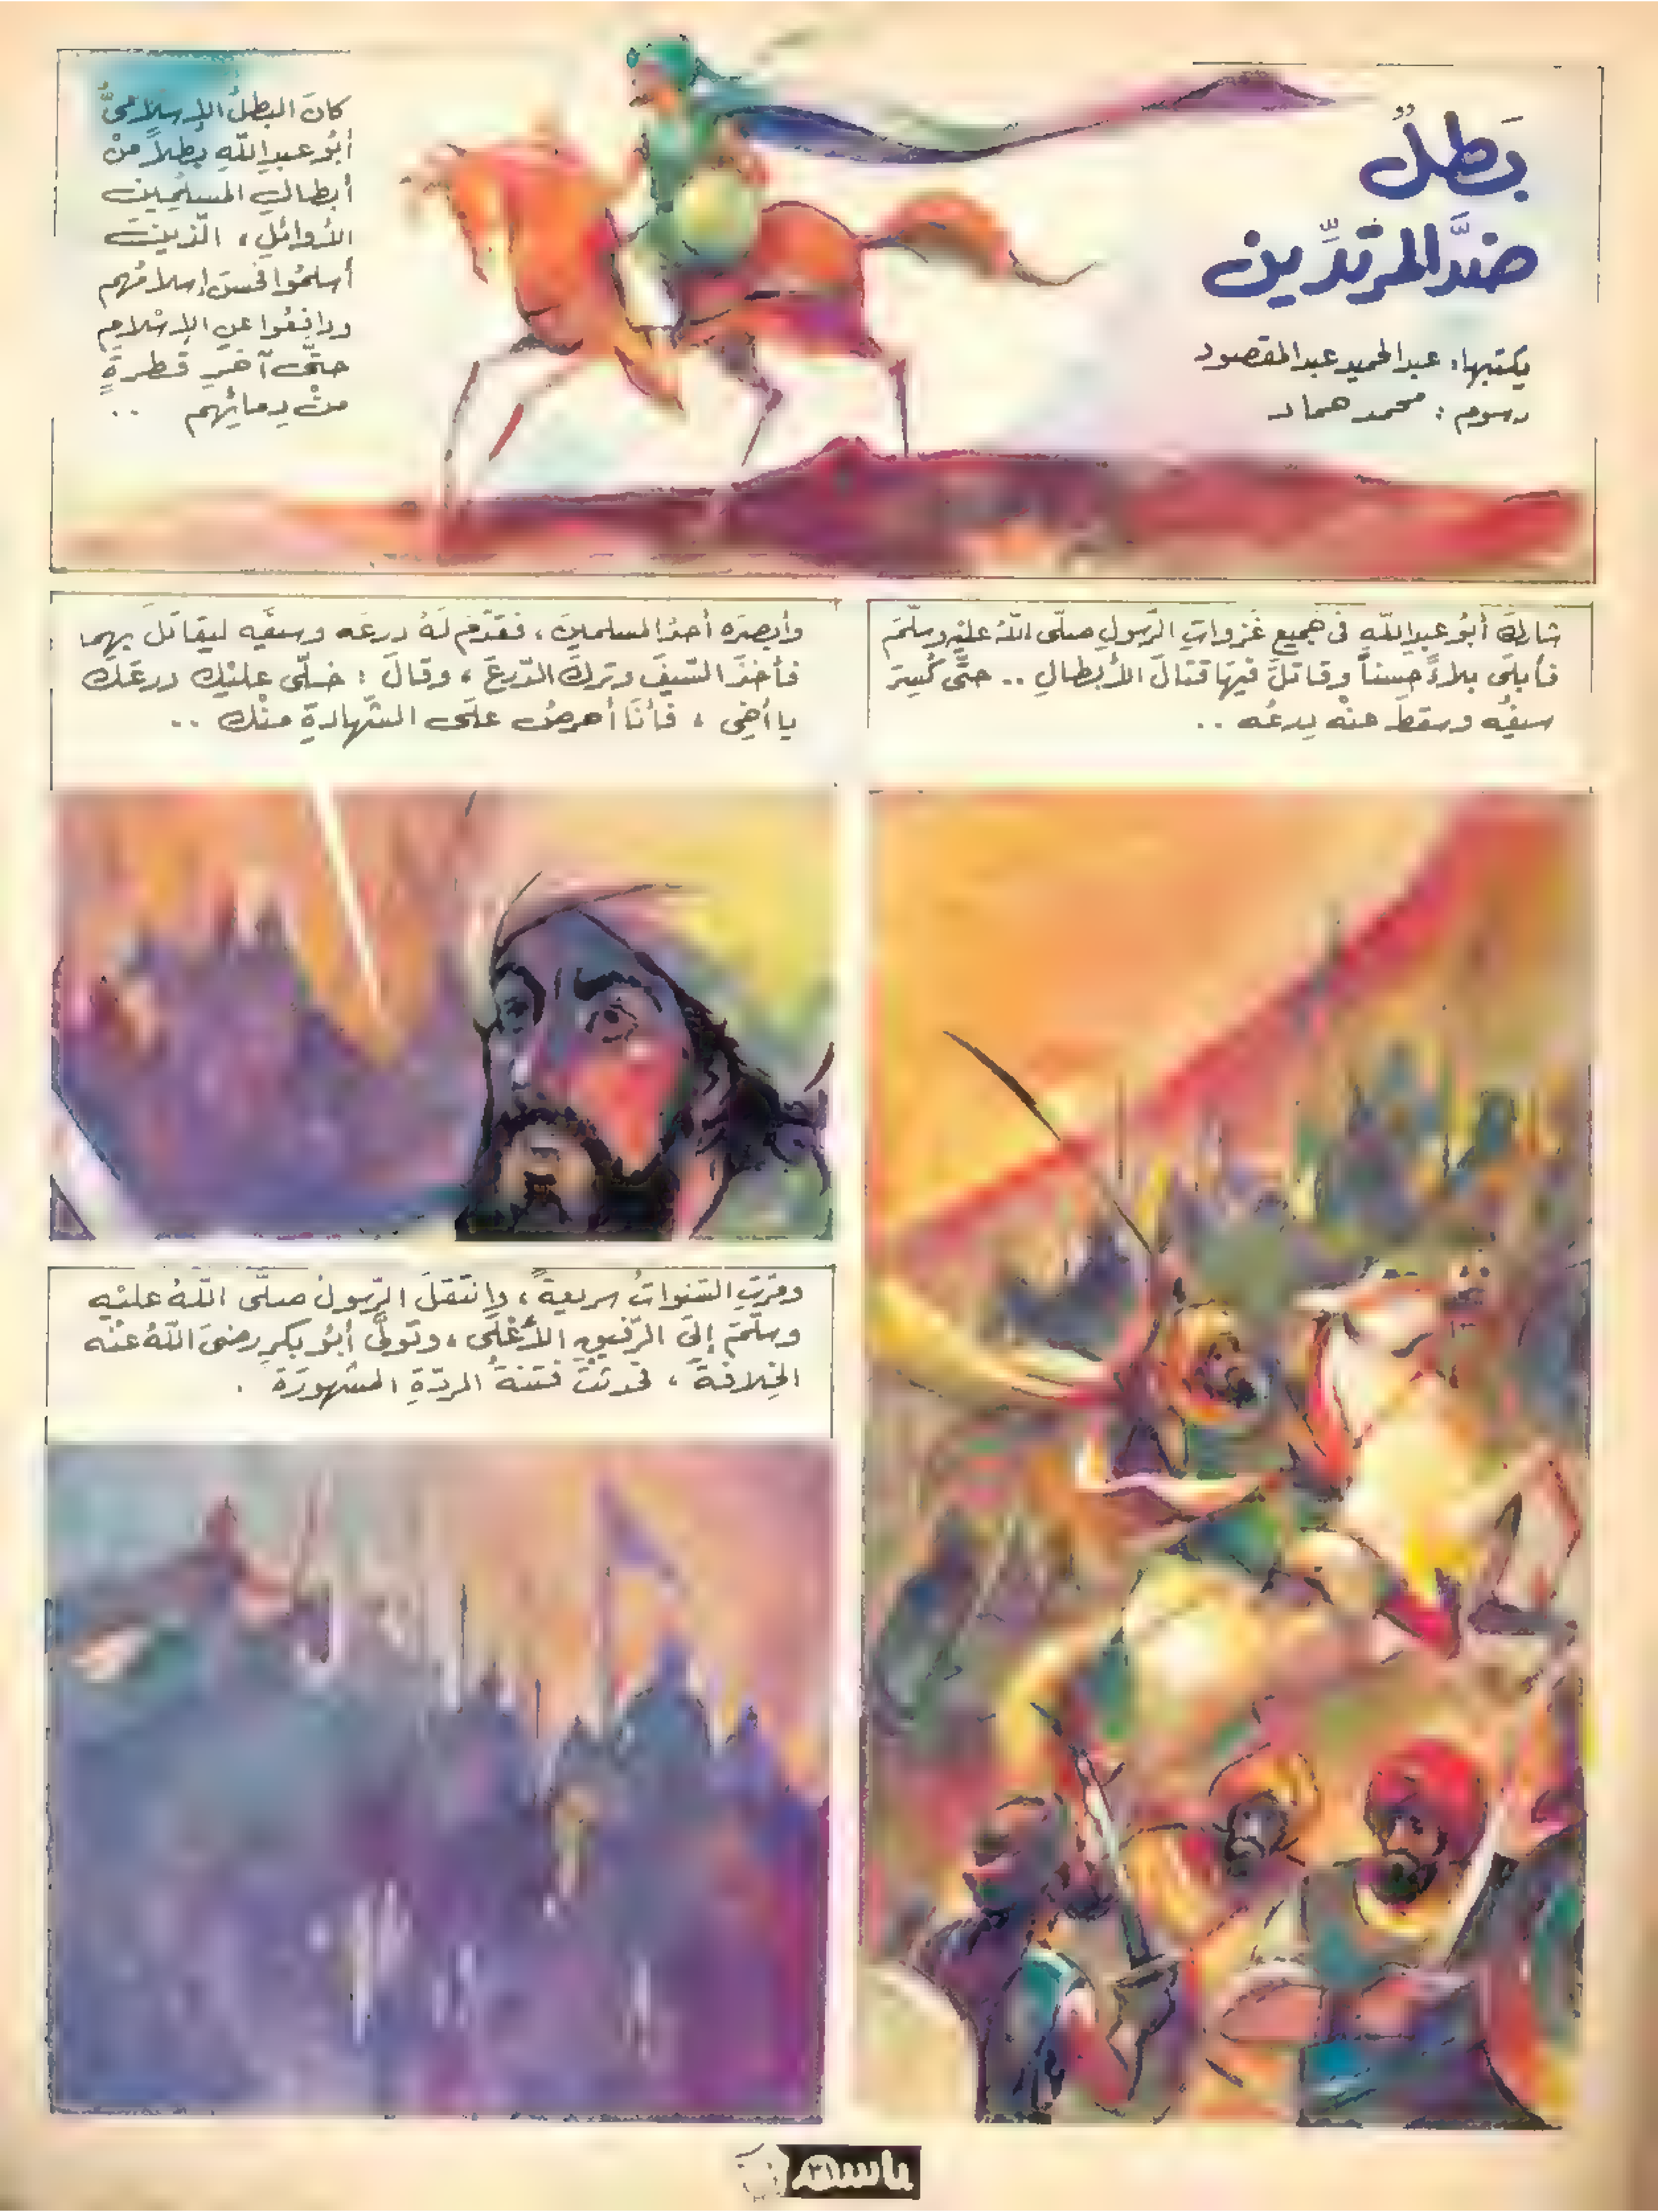 بَطلٌ
ضدَّ المرتدِّين
يكتبها: عبد الحميد عبد المقصود
رسوم: محمد همام
كانَ البطلُ الإسلاميُّ
أبُو عبدِ اللهِ بطلاً منْ
أبطالِ المسلمينَ
الأوائلِ، الَّذينَ
أسلمُوا فحسنَ إسلامُهم
ودافعُوا عنِ الإسْلامِ
حتَّى آخرِ قطرةٍ
منْ دمائِهم ..
شاركَ أبُو عبدِ اللهِ فى جميعِ غزواتِ الرَّسولِ صلَّى اللهُ عليْهِ وسلَّمَ
فأبلَى بلاءً حسناً وقاتلَ فيهَا قتالَ الأبطالِ .. حتَّى كُسِرَ
سيفُه وسقطَ عنْه درعُه ..
وأبصرَه أحدُ المسلمينَ، فقدَّم لَهُ درعَه وسيفَه ليقاتلَ بهِما
فأخذَ السَّيفَ وتركَ الدِّرعَ، وقالَ: خلِّى عليْكَ درعَكَ
يا أخِى، فأنَا أحرصُ علَى الشَّهادةِ منْكَ ..
ومرَّتِ السَّنواتُ سريعةً، وانتقلَ الرَّسولُ صلَّى اللهُ عليْهِ
وسلَّمَ إلَى الرَّفيقِ الأعْلَى، وتولَّى أبُو بكرٍ رضىَ اللهُ عنْه
الخِلافةَ، فحدثتْ فتنةُ الردَّةِ المشهورَة .
باسم
٣١